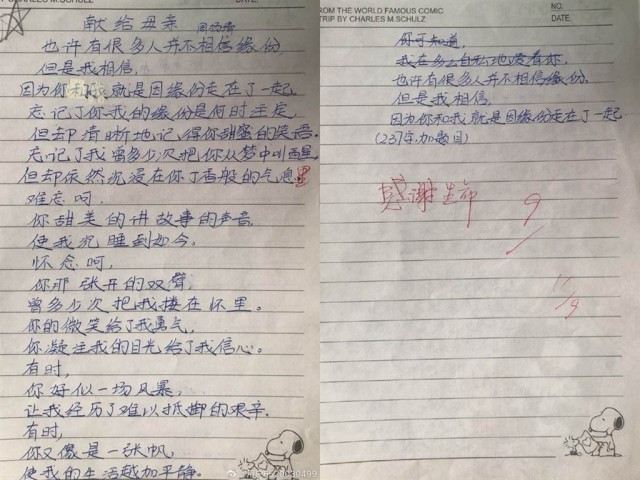 献给母亲
也许有很多人并不相信缘份,
但是我相信,
因为你和我就是因缘份走在了一起。
忘记了你我的缘份是何时注定,
但却清晰地记得你甜蜜的笑语。
忘记了我曾多少次把你从梦中叫醒,
但却依然沉浸在你丁香般的气息里
难忘呵,
你甜美的讲故事的声音
使我沉睡到如今。
怀念呵,
你那张开的双臂,
曾多少次把我搂在怀里。
你的微笑给了我勇气,
你凝注我的目光给了我信心。
有时,
你好似一场风暴,
让我经历了难以抵御的艰辛。
有时,
你又像是一张帆,
使我的生活越加平静。
FROM THE WORLD FAMOUS COMIC
STRIP BY CHARLES M.SCHULZ
NO.
DATE
你可知道,
我在多么自私地爱着你,
也许有很多人并不相信缘份,
但是我相信,
因为你和我就是因缘份走在了一起
(237字,加题目)
感谢生命
9
11/9